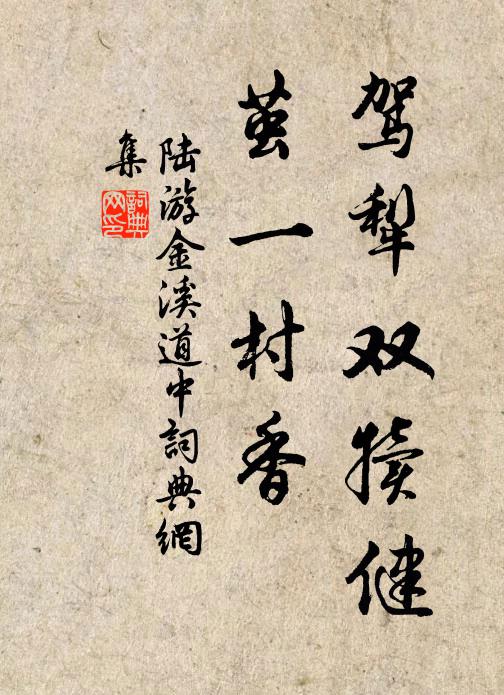 驾犁双犊健
茧一村香
陆游金溪道中詞典網
集
詞典
网印